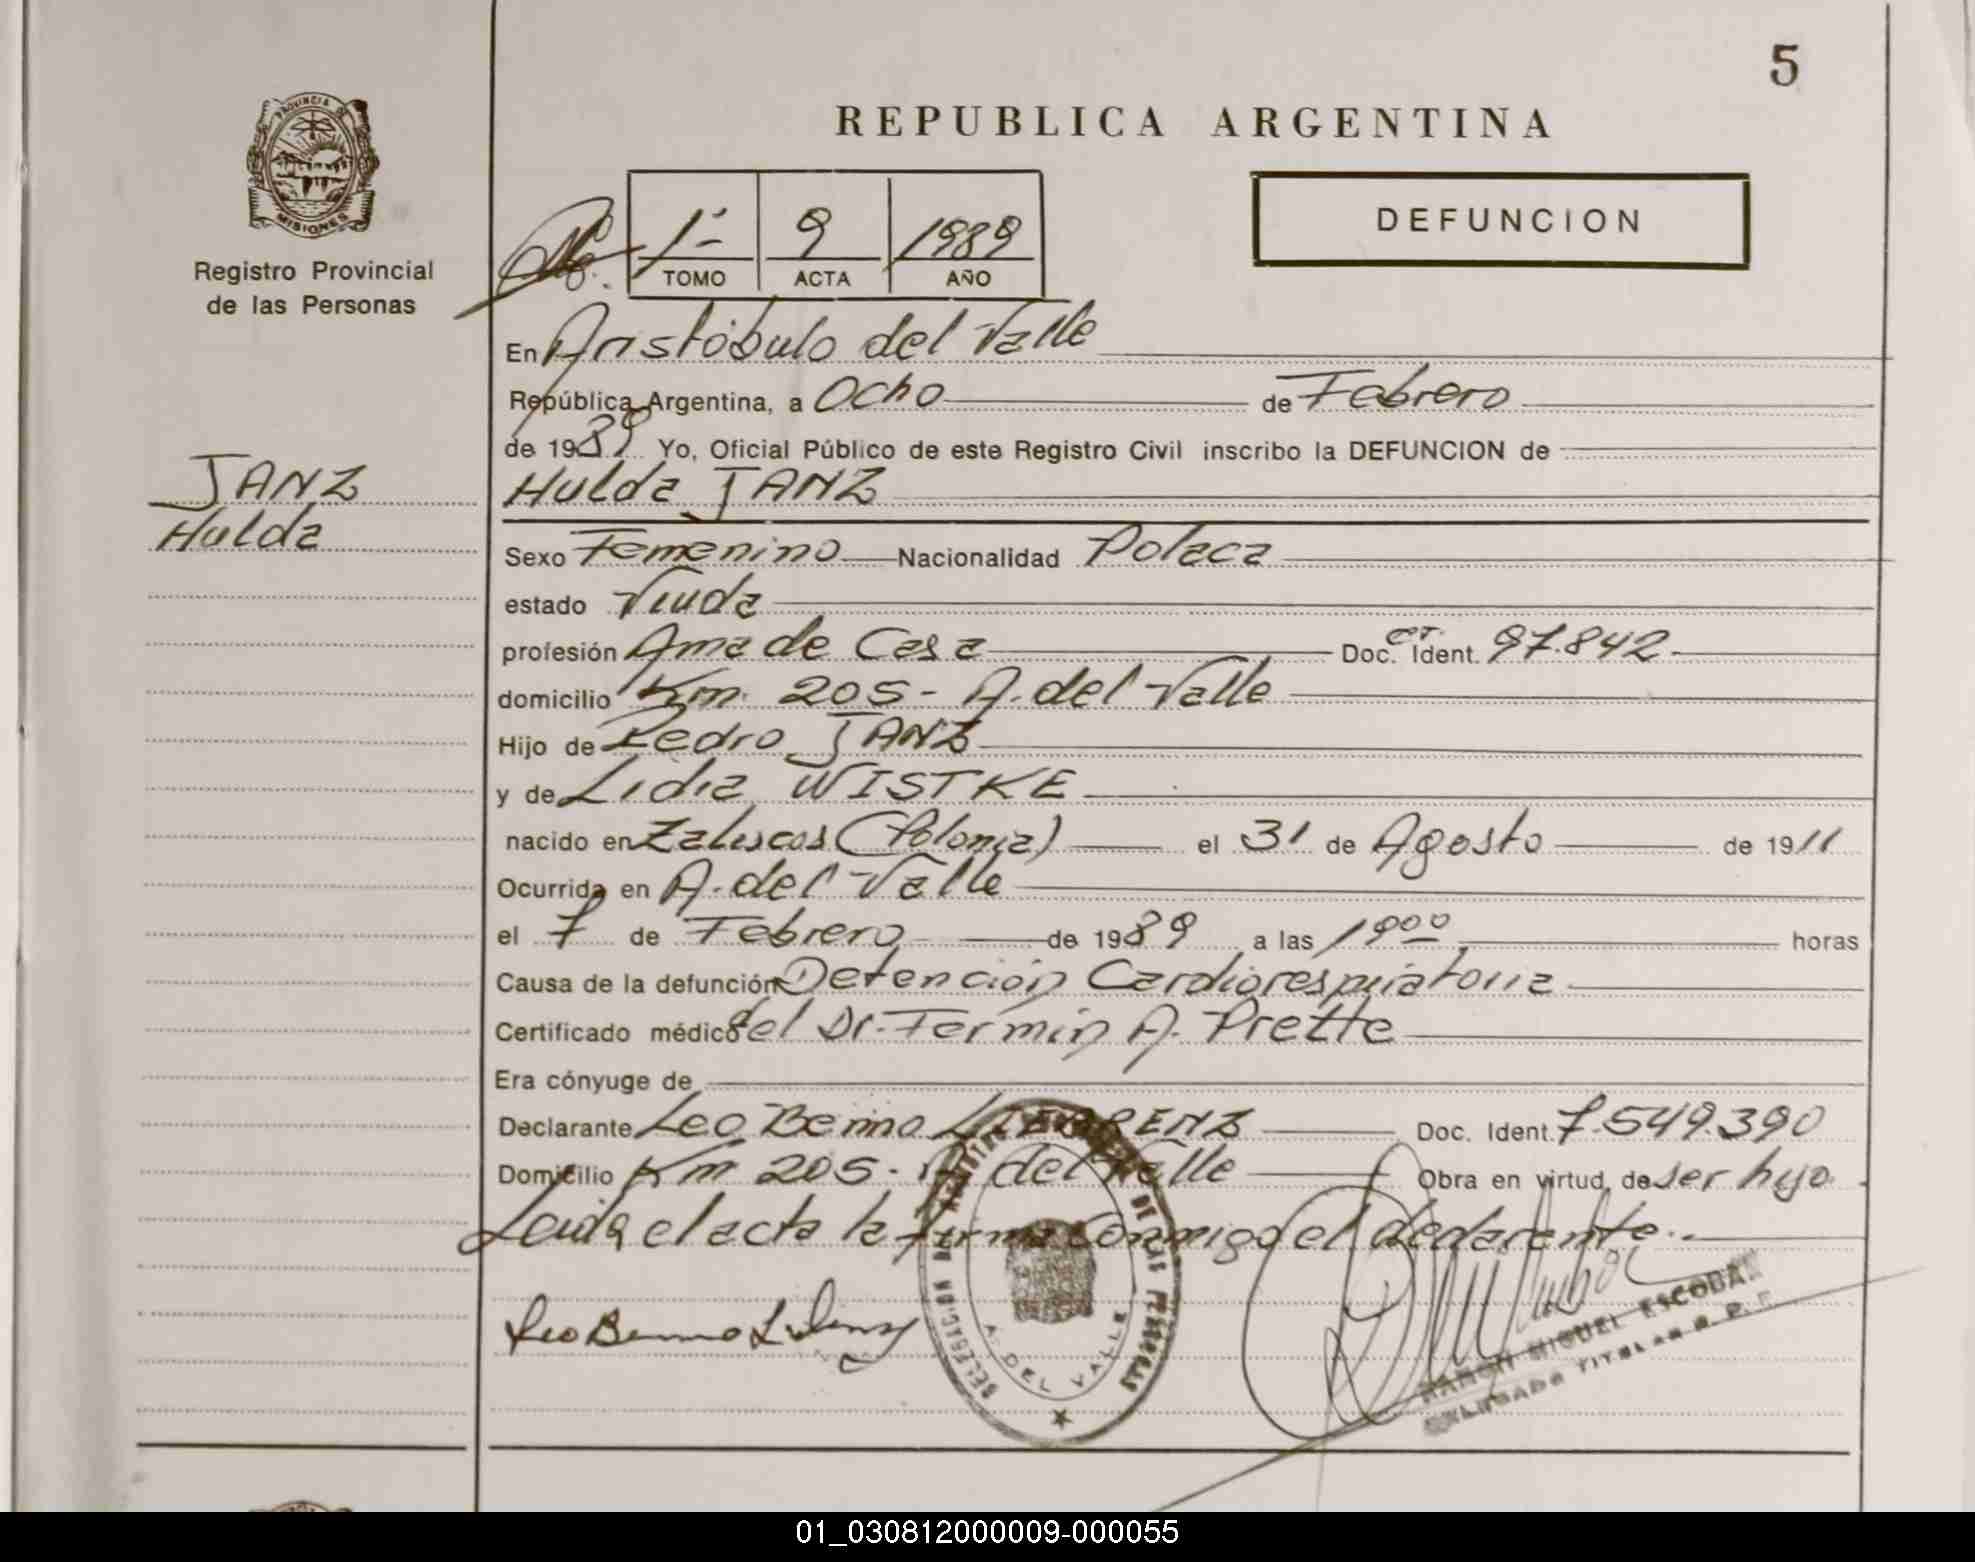 5
REPUBLICA ARGENTINA
PROVINCIA DE
MISIONES
Registro Provincial
de las Personas
1º 9 1989
TOMO ACTA AÑO
DEFUNCION
En Aristóbulo del Valle
República Argentina, a Ocho de Febrero
de 1989 Yo, Oficial Público de este Registro Civil inscribo la DEFUNCION de
JANZ
Hulda
Hulda JANZ
Sexo Femenino Nacionalidad Polaca
estado Viuda
profesión Ama de Casa Doc. Ident. CI. 97.842
domicilio Km. 205 - A. del Valle
Hijo de Pedro JANZ
y de Lidia WISTKE
nacido en (Polonia) el 31 de Agosto de 1911
Ocurrida en A. del Valle
el 7 de Febrero de 1989 a las 19⁰⁰ horas
Causa de la defunción Detención Cardiorespiratoria
Certificado médico del Dr. Fermin A. Prette
Era cónyuge de
Declarante Leo Benno Doc. Ident. 7.549.390
Domicilio Km 205 - A. del Valle Obra en virtud de ser hijo.
Leida el acta la firma conmigo el declarante.-
Leo Benno
DELEGACION REGISTRO PROVINCIAL DE LAS PERSONAS
A. DEL VALLE
RAMON MIGUEL ESCOBAR
TITULAR R. P.
01_030812000009-000055